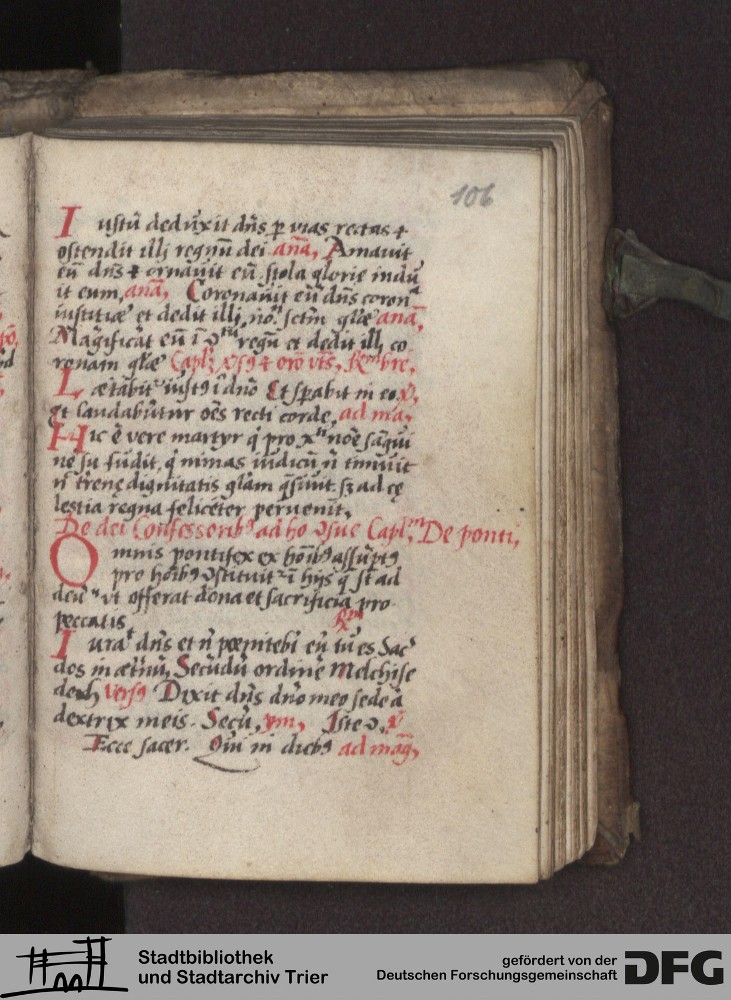 106
Iustū deduxit dn̄s p vias rectas ⁊
ostendit illi regnū dei anā, Amauit
eū dn̄s ⁊ ornauit eū stola glorię indu
it eum, anā, Coronauit eū dn̄s coron
iustitiæ et dedit illi nō sctm̄ glæ anā,
Magnificat eū ī regū et dedit illi co
ronam glæ Capl̄ ⁊ orō bre,
Lætabit iustꝰ ī dn̄o Et spabit in eo, v,
Et laudabūtur oēs recti corde, ad ma,
Hic ē vere martyr q̄ pro noīe sāgui
nē su fudit, q̄ minas iudicū n̄ timuit
n̄ trenę dignitatis glam q̄siuit sꝫ ad cę
lestia regna feliciter peruenit,
De dei Confessoribꝰ ad ho Capl, De ponti,
Omnis pontifex ex hoībꝰ assūptꝰ
pro hoībꝰ ↄstituit ī hijs q̄ st̄ ad
deū vt offerat dona et sacrificia pro
peccatis R
Iura dn̄s et n̄ pœnitebi eū tu es Sac
dos in ætnū, Secūdū ordinē Melchise
dech Versꝰ Dixit dn̄s dn̄o meo sede a
dextrix meis. Secū, ym, Iste ↄ, v
Ecce sacer. Qui in diebꝰ ad mag,
Stadtbibliothek
und Stadtarchiv Trier
gefördert von der
Deutschen Forschungsgemeinschaft
DFG